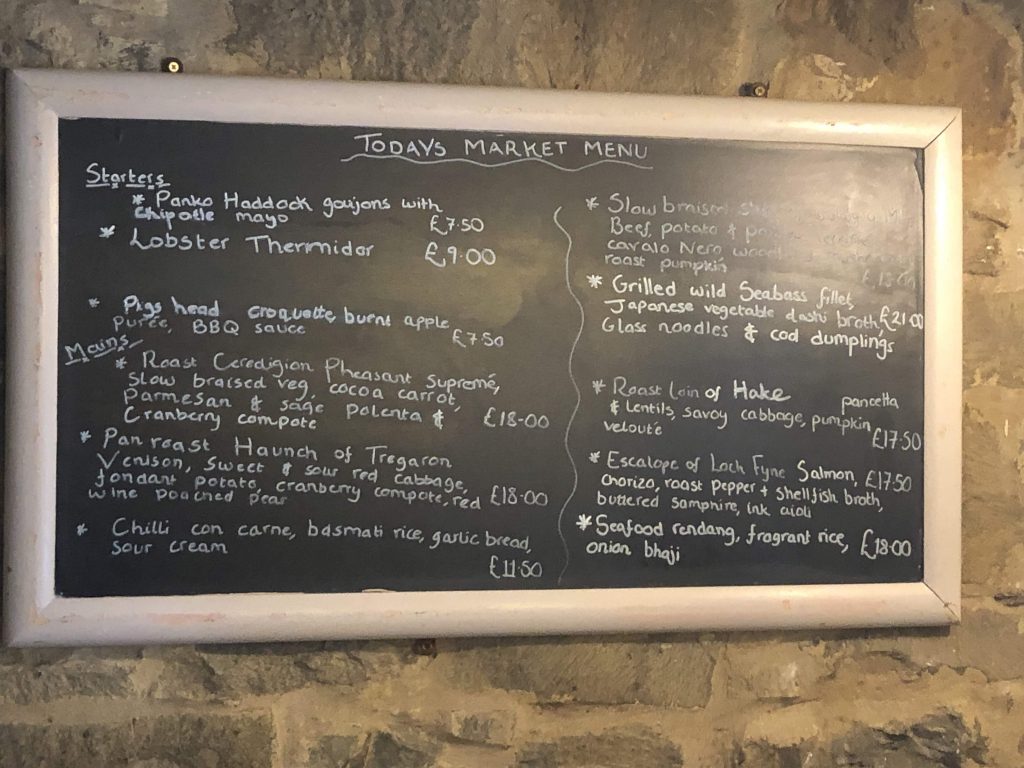 TODAYS MARKET MENU
Starters
* Panko Haddock goujons with
Chipotle mayo £7.50
* Lobster Thermidor £9.00
* Pigs head croquette, burnt apple
puree, BBQ sauce £7.50
Mains
* Roast Ceredigion Pheasant Supreme,
Slow braised veg, cocoa carrot,
Parmesan & sage Polenta &
Cranberry compote £18.00
* Pan roast Haunch of Tregaron
Venison, sweet & sour red cabbage,
fondant potato, cranberry compote, red
wine poached pear £18.00
* Chilli con carne, basmati rice, garlic bread,
Sour cream
£11.50
* Slow braised
Beef, potato &
cavalo Nero
roast pumpkin
* Grilled wild Seabass fillet,
Japanese vegetable dashi broth, £21.00
Glass noodles & cod dumplings
* Roast Loin of Hake pancetta
& Lentils, savoy cabbage, pumpkin
velouté £17.50
* Escalope of Loch Fyne Salmon, £17.50
Chorizo, roast pepper + Shellfish broth,
buttered samphire, ink aioli
* Seafood rendang, fragrant rice, £18.00
onion bhaji